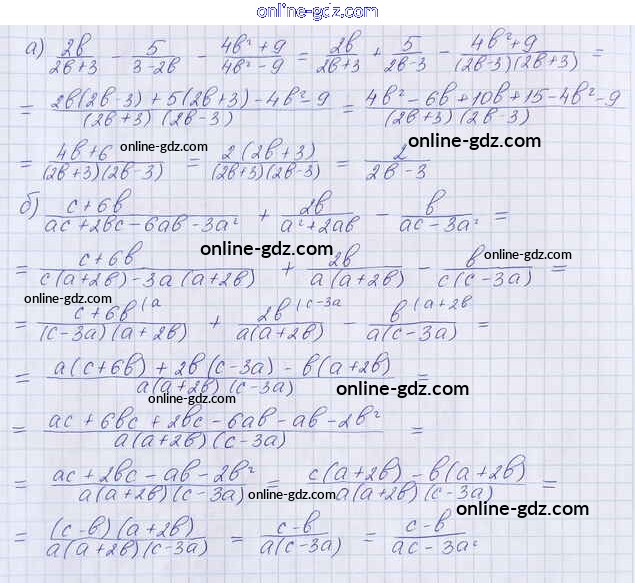 online-gdz.com
а) 2b/(2b+3) - 5/(3-2b) - (4b²+9)/(4b²-9) = 2b/(2b+3) + 5/(2b-3) - (4b²+9)/((2b-3)(2b+3)) =
= (2b(2b-3)+5(2b+3)-4b²-9)/((2b+3)(2b-3)) = (4b²-6b+10b+15-4b²-9)/((2b+3)(2b-3))
= (4b+6)/((2b+3)(2b-3)) online-gdz.com = 2(2b+3)/((2b+3)(2b-3)) = 2/(2b-3) online-gdz.com
б) (c+6b)/(ac+2bc-6ab-3a²) + 2b/(a²+2ab) - b/(ac-3a²) =
online-gdz.com
= (c+6b)/(c(a+2b)-3a(a+2b)) + 2b/(a(a+2b)) - b/(c(c-3a)) = online-gdz.com
online-gdz.com
= (c+6b)|a/((c-3a)(a+2b)) + 2b|c-3a/(a(a+2b)) - b|a+2b/(a(c-3a)) = online-gdz.com
= (a(c+6b)+2b(c-3a)-b(a+2b))/(a(a+2b)(c-3a)) =
online-gdz.com
= (ac+6bc+2bc-6ab-ab-2b²)/(a(a+2b)(c-3a)) =
= (ac+2bc-ab-2b²)/(a(a+2b)(c-3a)) = (c(a+2b)-b(a+2b))/(a(a+2b)(c-3a)) =
online-gdz.com
= (c-b)(a+2b)/(a(a+2b)(c-3a)) = (c-b)/(a(c-3a)) = (c-b)/(ac-3a²)
online-gdz.com